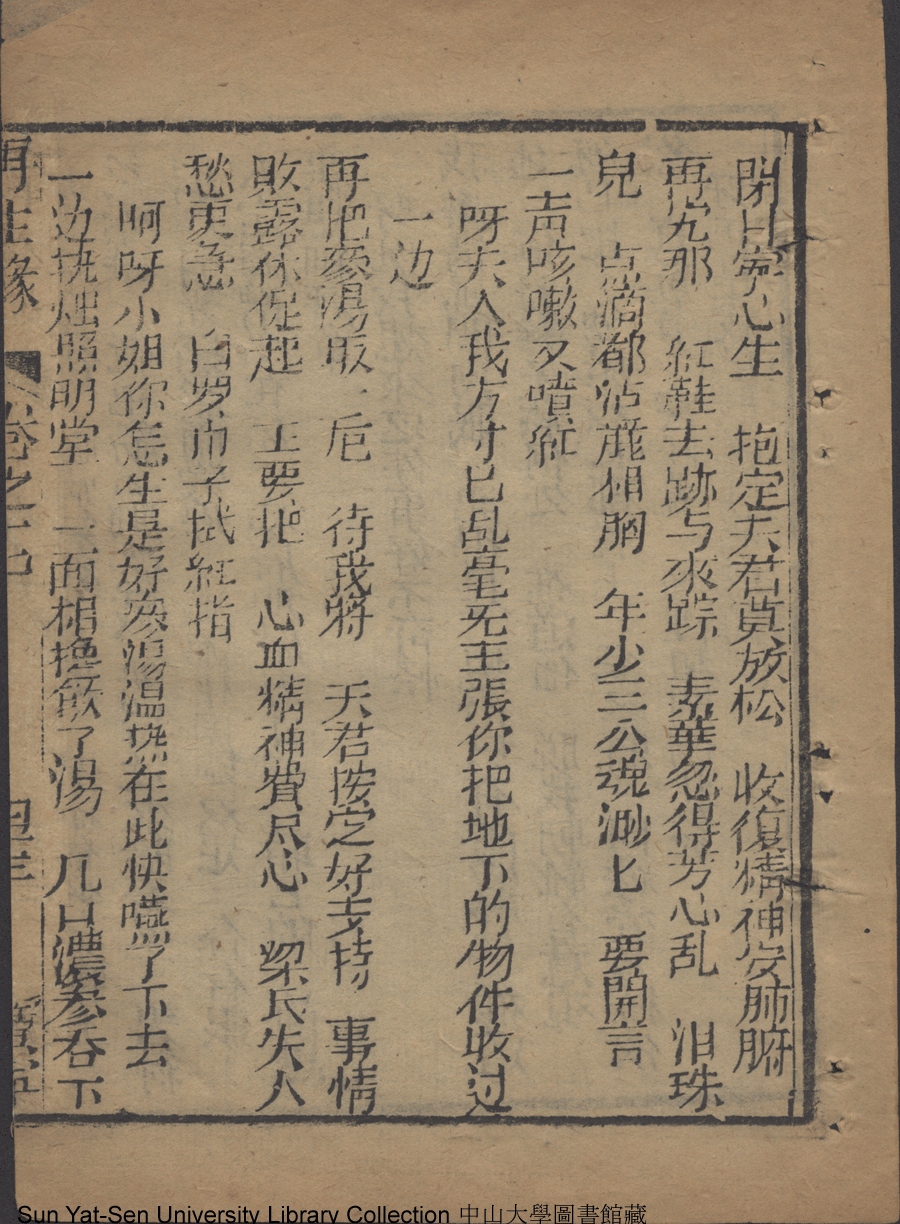 閉目寧心生 抱定夫君莫放松 收復精神安肺腑
再把那 紅鞋去跡与來踪 素華忽得芳心乱 泪珠
皃 点滴都沾 相胸 年少三公魂渺匕 要開言
一声咳嗽又噴紅
呀夫人我方寸已乱毫旡主張你把地下的物件收过
一边
再把參湯取一卮 待我將 夫君按定好支持 事情
敗露休促起 工要把 心血精神費尽心 梁氏夫人
愁更急 白罗巾子拭紅指
呵呀小姐你怎生是好參湯温热在此快嚥了下去
一边执烛照明堂 一面相攙飲了湯 几口濃參吞下
再生緣 卷之十四
Sun Yat-Sen University Library Collection 中山大學圖書館藏